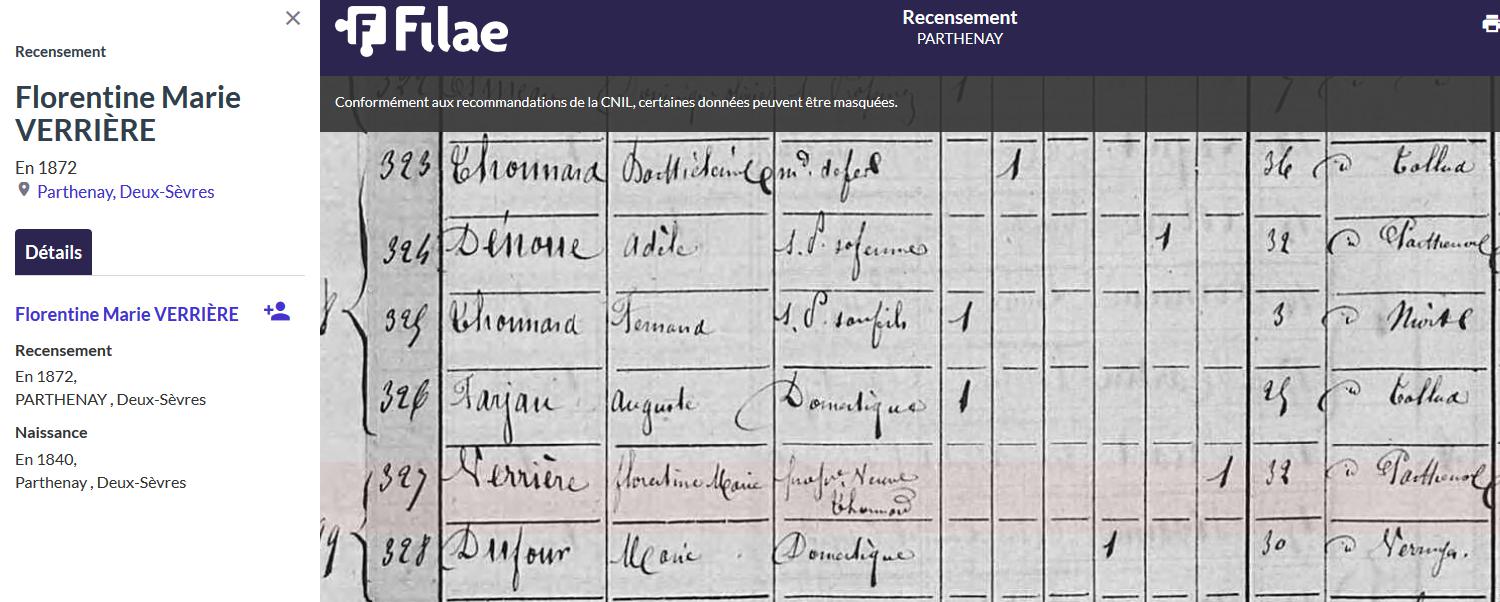 Recensement
Florentine Marie
VERRIÈRE
En 1872
Parthenay, Deux-Sèvres
Détails
Florentine Marie VERRIÈRE
Recensement
En 1872,
PARTHENAY , Deux-Sèvres
Naissance
En 1840,
Parthenay , Deux-Sèvres
Filae
Recensement
PARTHENAY
Conformément aux recommandations de la CNIL, certaines données peuvent être masquées.
323 Thonnard md. de fer 1 36 Tallud
324 Denoue Adèle s. P. sa femme 1 32 Parthenay
325 Thonnard Fernand s. P. son fils 1 3 Niort
326 Farjau Auguste Domestique 1 25 Tallud
327 Verrière florentine Marie Veuve 1 32 Parthenay
Thonnard
328 Dufour Marie Domestique 1 30